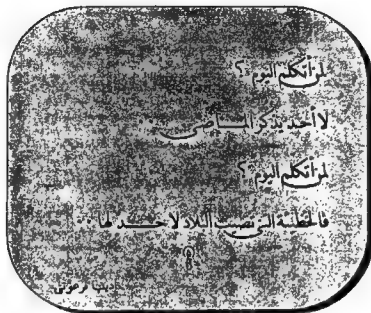 لمن أتكلم اليوم ؟
لا أحد يذكر الماضي ..
لمن أتكلم اليوم ؟
فالخطيئة التي تصيب البلاد لا حد لها ..
أديب فرعوني